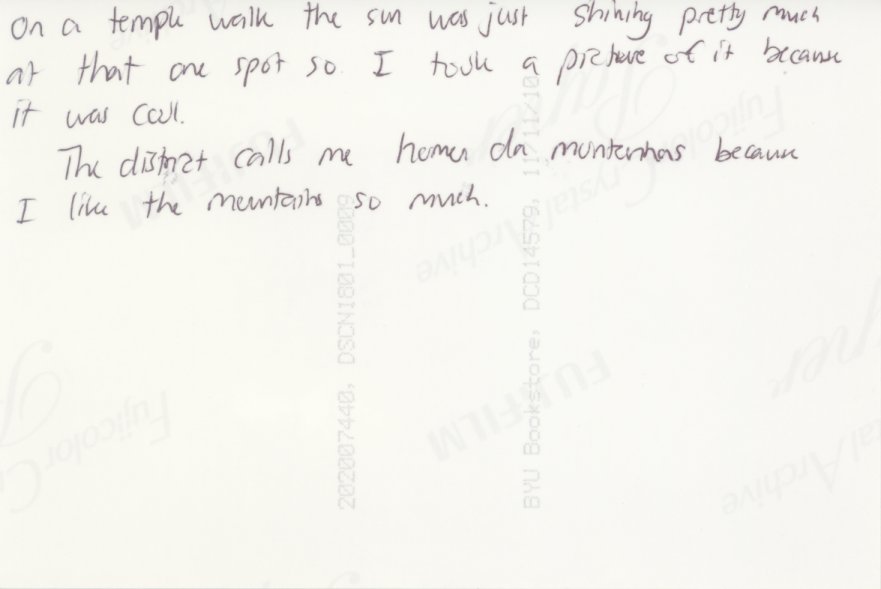 On a temple walk the sun was just shining pretty much
at that one spot so I took a picture of it because
it was cool.
The district calls me homen da montanhas because
I like the mountains so much.
202007440, DSCN1801_0009
BYU Bookstore, DCD14579, 11/11/10
FUJIFILM
Fujicolor Crystal Archive
FUJIFILM